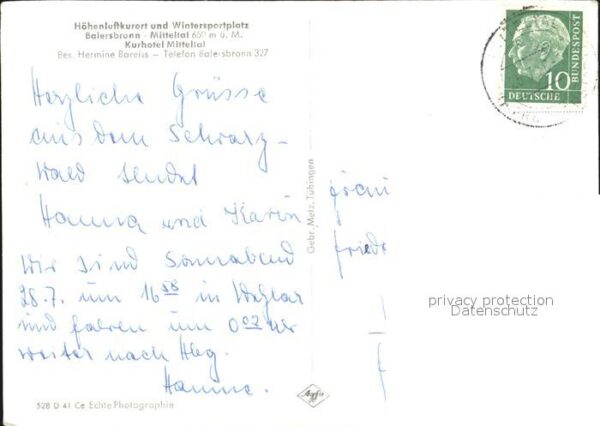 Höhenluftkurort und Wintersportplatz
Baiersbronn - Mitteltal 650 m ü. M.
Kurhotel Mitteltal
Bes. Hermine Bareiss — Telefon Baiersbronn 327
Herzliche Grüsse
aus dem Schwarz-
wald sendet
Hanna und Karin
Wir sind Sonnabend
28.7. um 16 58 in Wetzlar
und fahren um 0 02 Uhr
weiter nach Hbg.
Hanna.
528 D 41 Ce Echte Photographie
Agfa
Gebr. Metz, Tübingen
10
DEUTSCHE
BUNDESPOST
Frau
Friedr
privacy protection
Datenschutz